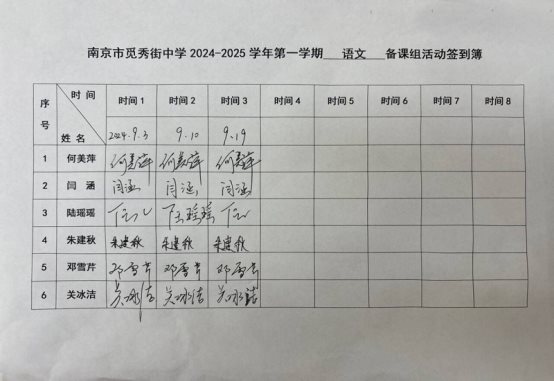 南京市觅秀街中学 2024-2025 学年第一学期 语文 备课组活动签到簿
序号 时间 姓名 时间 1 时间 2 时间 3 时间 4 时间 5 时间 6 时间 7 时间 8
2024.9.3 9.10 9.19
1 何美萍 何美萍 何美萍 何美萍
2 闫 涵 闫涵 闫涵 闫涵
3 陆瑶瑶 陆瑶瑶
4 朱建秋 朱建秋 朱建秋 朱建秋
5 邓雪芹 邓雪芹 邓雪芹 邓雪芹
6 关冰洁 关冰洁 关冰洁 关冰洁